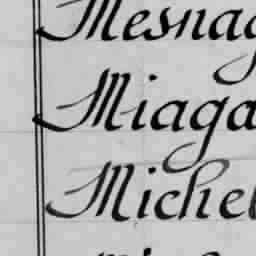 Mesnag
Miaga
Michel